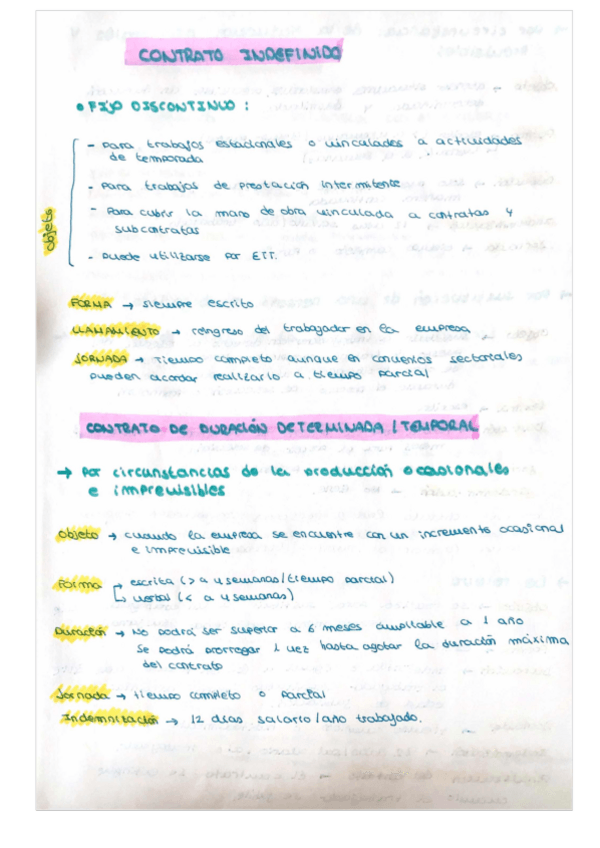 CONTRATO INDEFINIDO
• FIJO DISCONTINUO :
objeto
- Para trabajos estacionales o vinculados a actividades
de temporada
- Para trabajos de prestación intermitente
- Para cubrir la mano de obra vinculada a contratas y
subcontratas
- Puede utilizarse por ETT.
FORMA → siempre escrito
LLAMAMIENTO → reingreso del trabajador en la empresa
JORNADA → Tiempo completo aunque en convenios sectoriales
pueden acordar realizarlo a tiempo parcial
CONTRATO DE DURACIÓN DETERMINADA / TEMPORAL
→ Por circunstancias de la producción ocasionales
e imprevisibles
Objeto → cuando la empresa se encuentre con un incremento ocasional
e imprevisible
Forma → escrita (> a 4 semanas/tiempo parcial)
↳ verbal (< a 4 semanas)
Duración → No podrá ser superior a 6 meses ampliable a 1 año
Se podrá prorrogar 1 vez hasta agotar la duración máxima
del contrato
Jornada → tiempo completo o parcial
Indemnización → 12 días salario/año trabajado.